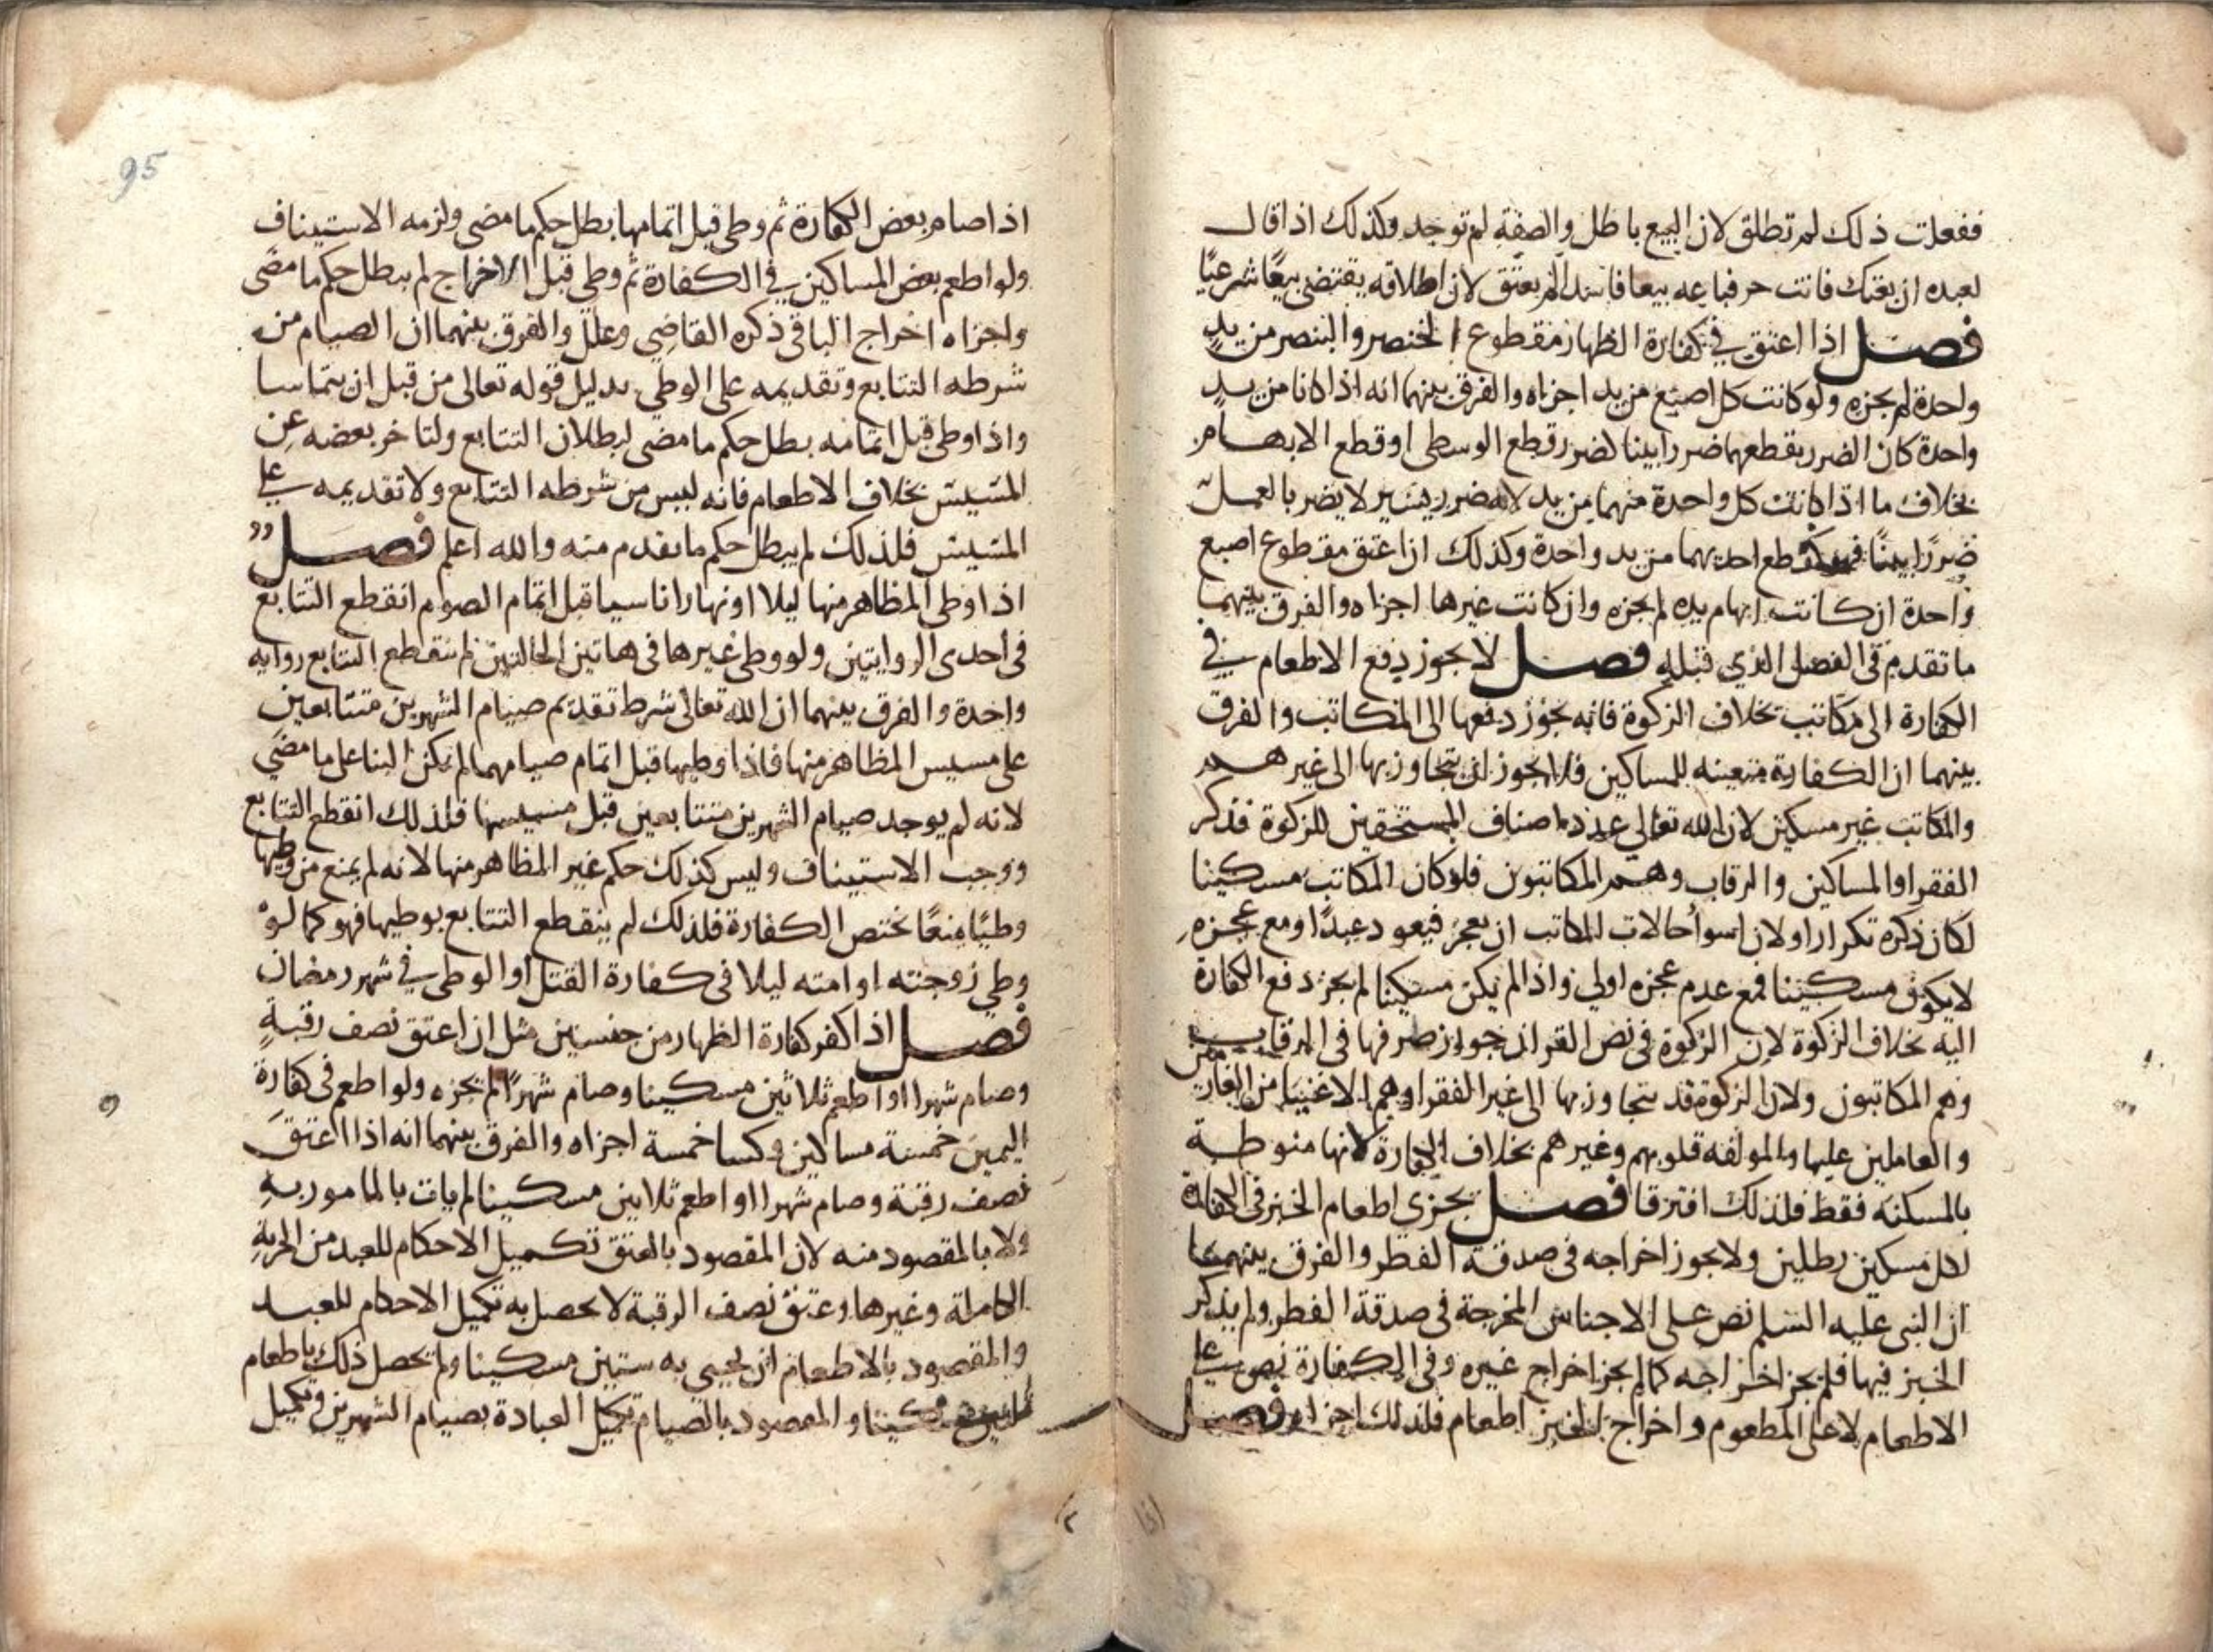 ففعلت ذلك لم تطلق لان البيع باطل والصفة لم توجد وكذلك اذا قال
لعبده ان بعتك فانت حر فباعه بيعا فاسدا لم يعتق لان اطلاقه يقتضي بيعًا شرعيًا
فصل اذا اعتق في كفارة الظهار مقطوع الخنصر والبنصر من يدٍ
واحدة لم يجزه ولو كانت كل اصبع من يد اجزاه والفرق بينهما انه اذا كانا من يدٍ
واحدة كان الضرر بقطعهما ضررا بينا كضرر قطع الوسطى او قطع الابهام
بخلاف ما اذا كانت كل واحدة منهما من يد لانه ضرر يسير لا يضر بالعمل
ضررًا بينًا فهو كقطع احديهما من يد واحدة وكذلك ان اعتق مقطوع اصبع
واحدة ان كانت ابهام يده لم يجزه وان كانت غيرها اجزاه والفرق بينهما
ما تقدم في الفصل الذي قبله فصل لا يجوز دفع الاطعام في
الكفارة الى مكاتب بخلاف الزكوة فانه يجوز دفعها الى المكاتب والفرق
بينهما ان الكفارة متعينه للمساكين فلا يجوز ان يتجاوز بها الى غيرهم
والمكاتب غير مسكين لان الله تعالى عدد اصناف المستحقين للزكوة فذكر
الفقرا والمساكين والرقاب وهم المكاتبون فلو كان المكاتب مسكينا
لكان ذكره تكرارا ولان اسوأ حالات المكاتب ان يعجز فيعود عبدًا ومع عجزه
لا يكون مسكينا فمع عدم عجزه اولى واذا لم يكن مسكينا لم يجز دفع الكفارة
اليه بخلاف الزكوة لان الزكوة في نص القران جواز صرفها في الرقاب
وهم المكاتبون ولان الزكوة قد يتجاوز بها الى غير الفقرا وهم الاغنيا من الغارمين
والعاملين عليها والمولفه قلوبهم وغيرهم بخلاف الكفارة لانها منوطة
بالمسكنه فقط فلذلك افترقا فصل يجزي اطعام الخبز في الكفارة
لكل مسكين رطلين ولا يجوز اخراجه في صدقة الفطر والفرق بينهما
ان النبي عليه السلم نص على الاجناس المخرجة في صدقة الفطر ولم يذكر
الخبز فيها فلم يجز اخراجه كما لم يجز اخراج غيره وفي الكفارة نص على
الاطعام لا على المطعوم واخراج الخبز اطعام فلذلك اجزا فصل
اذا
95
اذا صام بعض الكفارة ثم وطي قبل اتمامها بطل حكم ما مضى ولزمه الاستيناف
ولو اطعم بعض المساكين في الكفارة ثم وطي قبل الاخراج لم يبطل حكم ما مضى
واجزاه اخراج الباقي ذكره القاضي وعلل والفرق بينهما ان الصيام من
شرطه التتابع وتقديمه على الوطي بدليل قوله تعالى من قبل ان يتماسا
واذا وطي قبل اتمامه بطل حكم ما مضى لبطلان التتابع ولتاخر بعضه عن
المسيس بخلاف الاطعام فانه ليس من شرطه التتابع ولا تقديمه على
المسيس فلذلك لم يبطل حكم ما تقدم منه والله اعلم فصل
اذا وطي المظاهر منها ليلا او نهارا ناسيا قبل اتمام الصوم انقطع التتابع
في احدى الروايتين ولو وطي غيرها في هاتين الحالتين لم ينقطع التتابع روايه
واحدة والفرق بينهما ان الله تعالى شرط تقديم صيام الشهرين متتابعين
على مسيس المظاهر منها فاذا وطيها قبل اتمام صيامهما لم يكن البنا على ما مضي
لانه لم يوجد صيام الشهرين متتابعين قبل مسيسها فلذلك انقطع التتابع
ووجب الاستيناف وليس كذلك حكم غير المظاهر منها لانه لم يمنع من وطيها
وطيًا منعًا يختص الكفارة فلذلك لم ينقطع التتابع بوطيها فهو كما لو
وطي زوجته او امته ليلا في كفارة القتل او الوطي في شهر رمضان
فصل اذا كفر كفارة الظهار من جنسين مثل ان اعتق نصف رقبةٍ
وصام شهرا او اطعم ثلاثين مسكينا وصام شهرًا لم يجزه ولو اطعم في كفارة
اليمين خمسة مساكين وكسا خمسة اجزاه والفرق بينهما انه اذا اعتق
نصف رقبة وصام شهرا او اطعم ثلاثين مسكينا لم يات بالمامور به
ولا بالمقصود منه لان المقصود بالعتق تكميل الاحكام للعبد من الحرية
الكاملة وغيرها وعتق نصف الرقبة لا يحصل به تكميل الاحكام للعبد
والمقصود بالاطعام ان يحيي به ستين مسكينا ولم يحصل ذلك باطعام
مسكينا والمقصود بالصيام تكميل العبادة بصيام الشهرين وتكميل